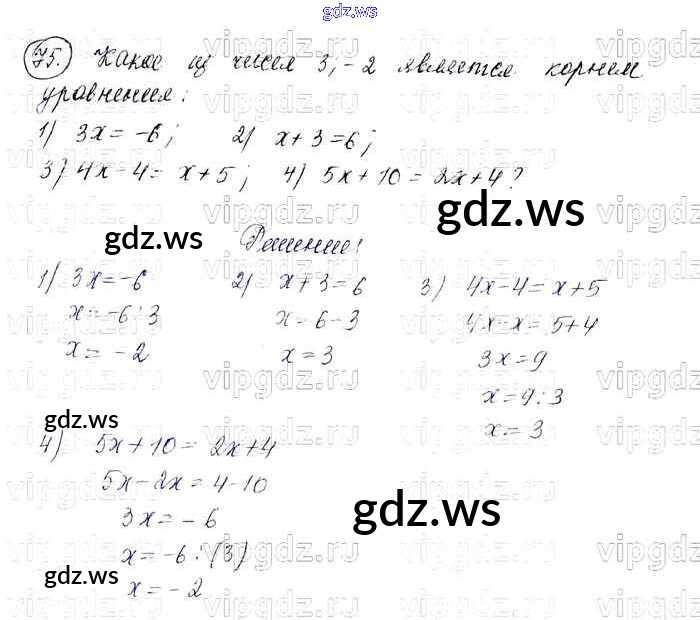 gdz.ws
75. Какое из чисел 3, -2 является корнем
уравнения:
1) 3x = -6; 2) x + 3 = 6;
3) 4x - 4 = x + 5; 4) 5x + 10 = 2x + 4?
gdz.ws
gdz.ws
Решение:
1) 3x = -6
x = -6 : 3
x = -2
2) x + 3 = 6
x = 6 - 3
x = 3
3) 4x - 4 = x + 5
4x - x = 5 + 4
3x = 9
x = 9 : 3
x = 3
gdz.ws
4) 5x + 10 = 2x + 4
5x - 2x = 4 - 10
3x = -6
x = -6 : (3)
x = -2
gdz.ws
gdz.ws
vipgdz.ru